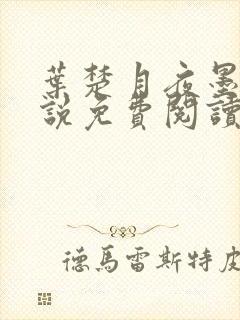 葉楚月夜墨
說免費閱讀
德馬雷斯特皮